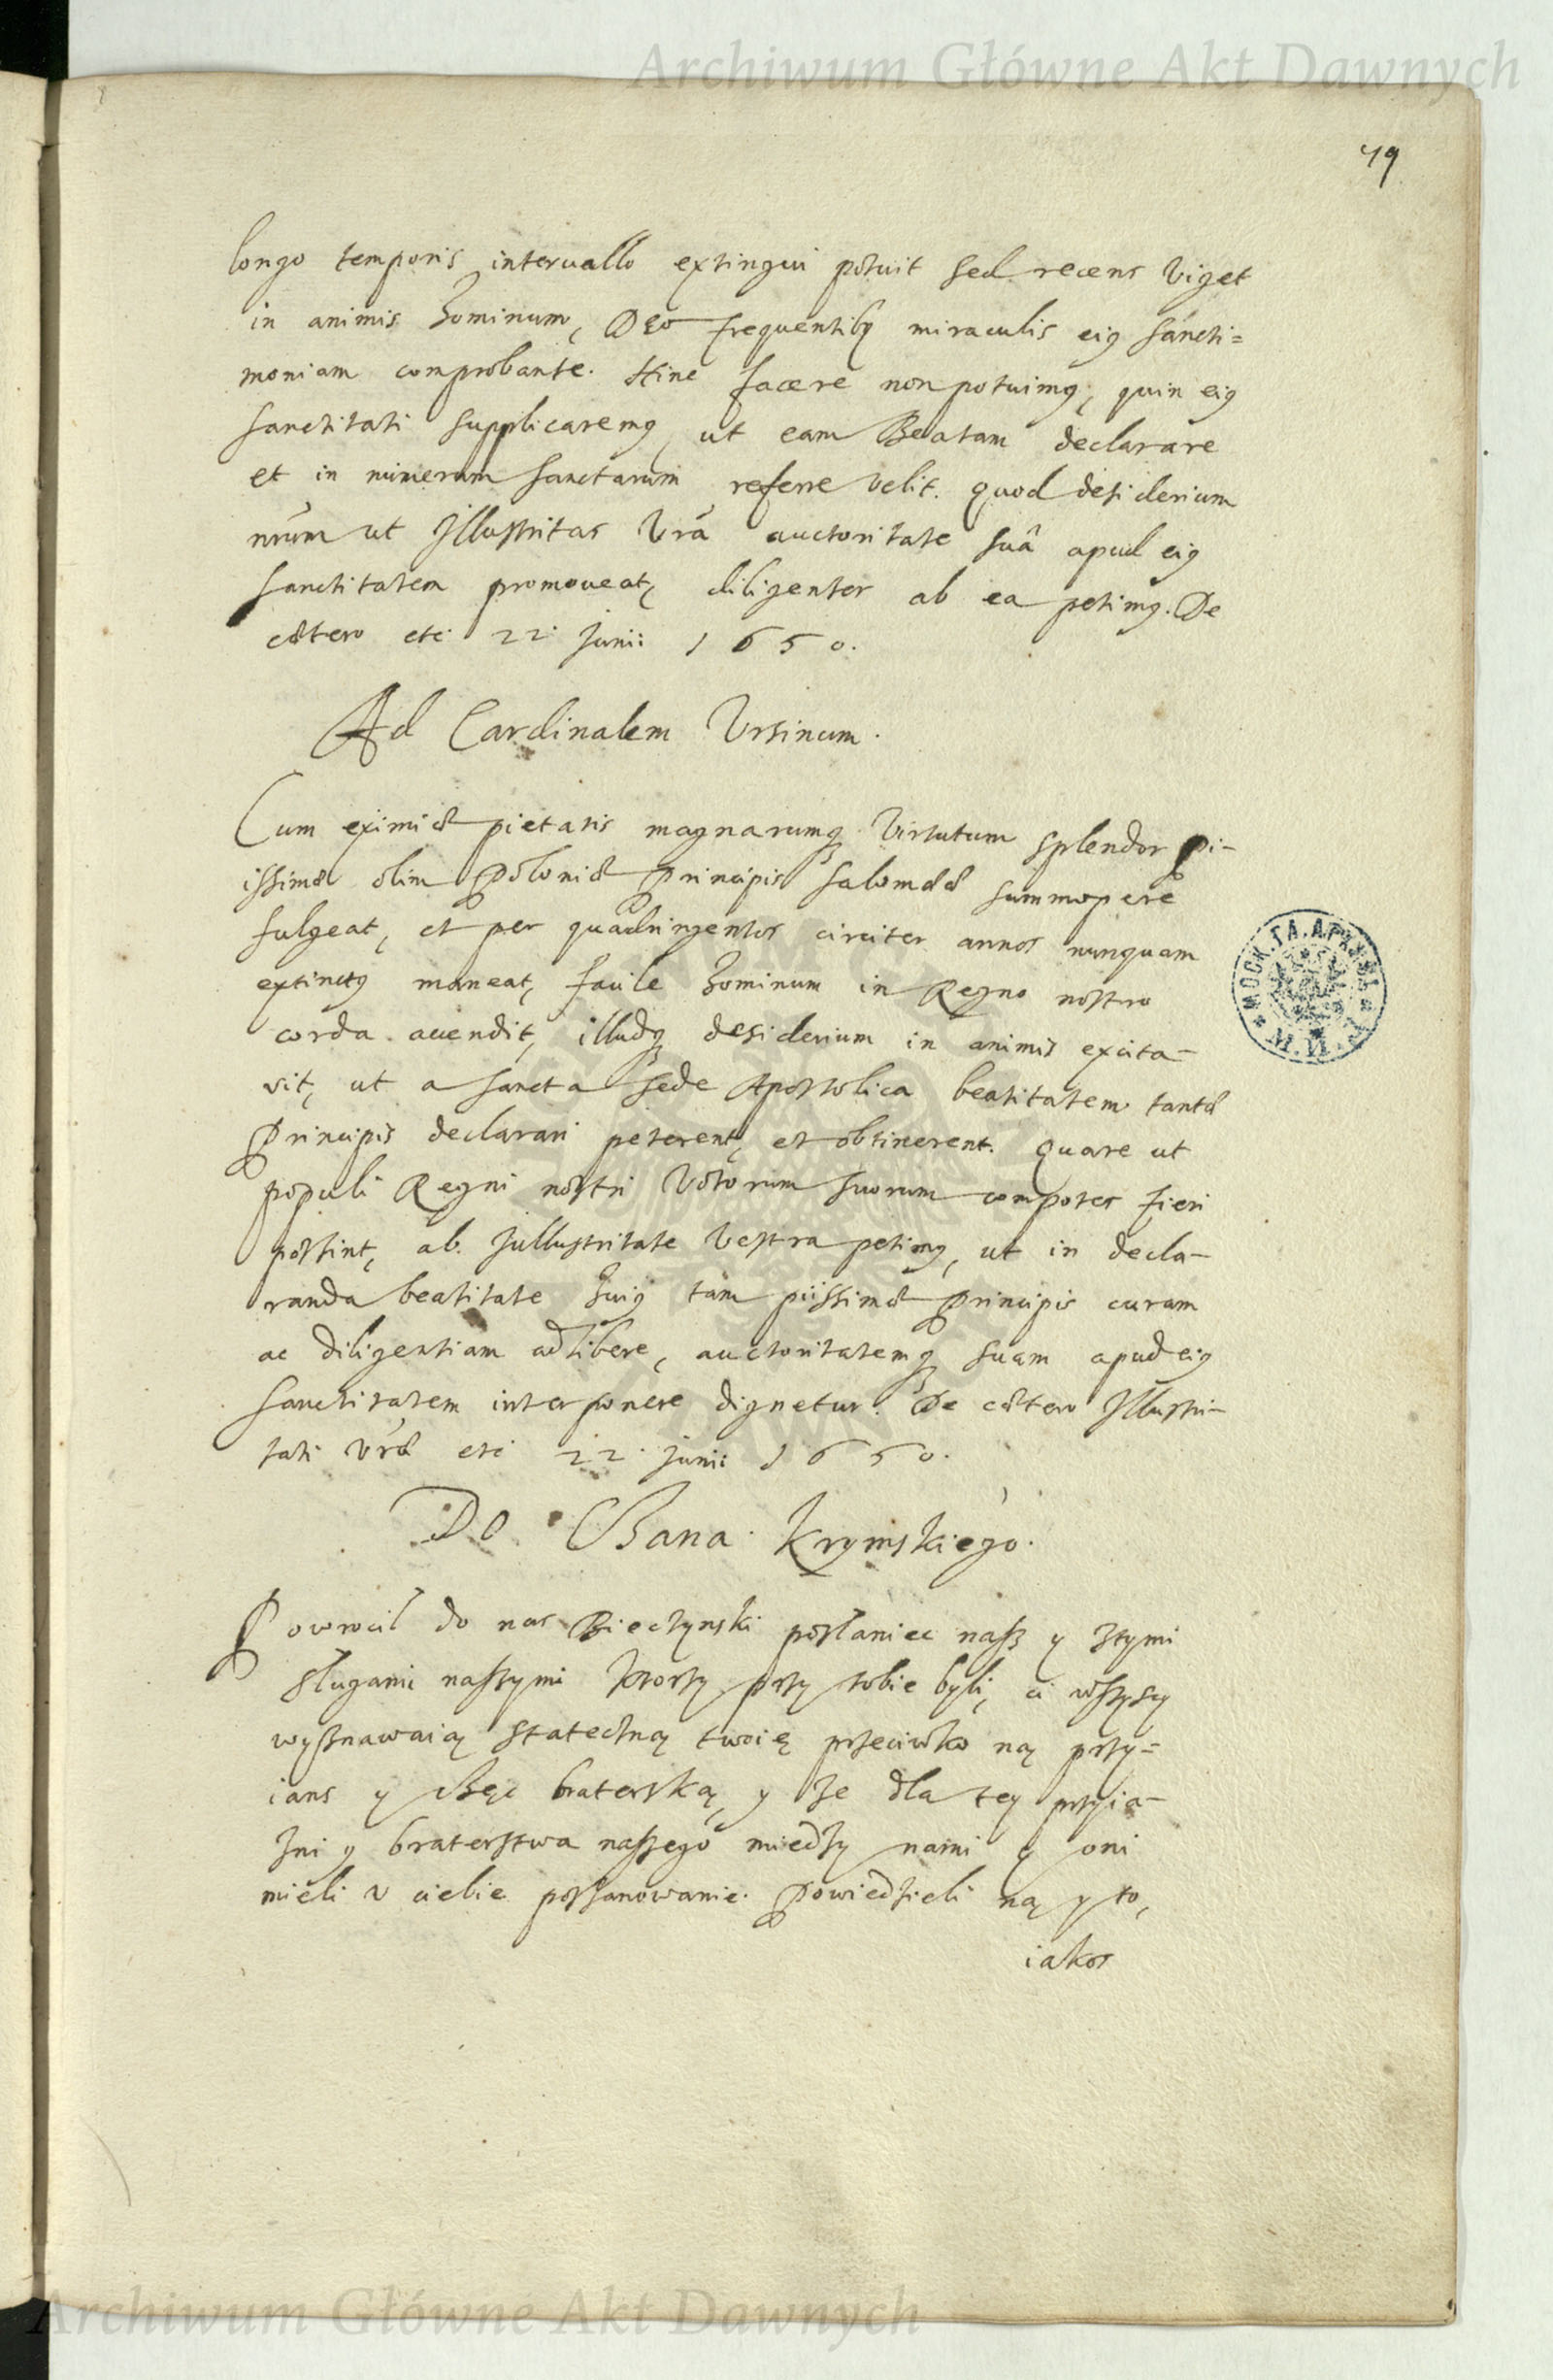 Archiwum Główne Akt Dawnych
49
longo temporis interuallo extingui potuit sed recens viget
in animis hominum, Deo frequentibꝫ miraculis eiꝫ sancti=
moniam comprobante. Hinc facere non potuimꝫ, quin eiꝫ
sanctitati supplicaremꝫ, ut eam Beatam declarare
et in numerum sanctarum referre velit. quod desiderium
nrum ut Illustritas Vra auctoritate suâ apud eiꝫ
sanctitatem promoueat, diligenter ab ea petimꝫ. De
cætero etc 22 Junii 1650.
Ad Cardinalem Vrsinum.
Cum eximiæ pietatis magnarumqꝫ virtutum splendor pi-
issimæ olim Poloniæ Principis Salomææ summopere
fulgeat, et per quadringentos circiter annos nunquam
extinctꝫ maneat, facile hominum in Regno nostro
corda accendit, illudqꝫ desiderium in animis excita-
vit, ut a sancta sede Apostolica beatitatem tantæ
Principis declarari peterent, et obtinerent. quare ut
populi Regni nostri votorum suorum compotes fieri
possint, ab Jullustritate Vestra petimꝫ, ut in decla-
randa beatitate huiꝫ tam piissimæ Principis curam
ac diligentiam adhibere, auctoritatemqꝫ suam apud eiꝫ
sanctitatem interponere dignetur. De cætero Illustri-
tati Vræ etc 22 Junii 1650.
Do Chana Krymskiego.
Powrocił do nas Bieczynski posłaniec nasz y z tymi
sługami naszymi ktorzy przy tobie byli, ci wszyscy
wyznawaią stateczną twoię przeciwko ną przy=
iazn y chęc braterską, y że dla tey przyia-
zni y braterstwa naszego miedzy nami y oni
mieli v ciebie poszanowanie. Powiedzieli ną y to,
iakos
МОСК. ГЛ. АРХИВЪ М. И. Д.
Archiwum Główne Akt Dawnych